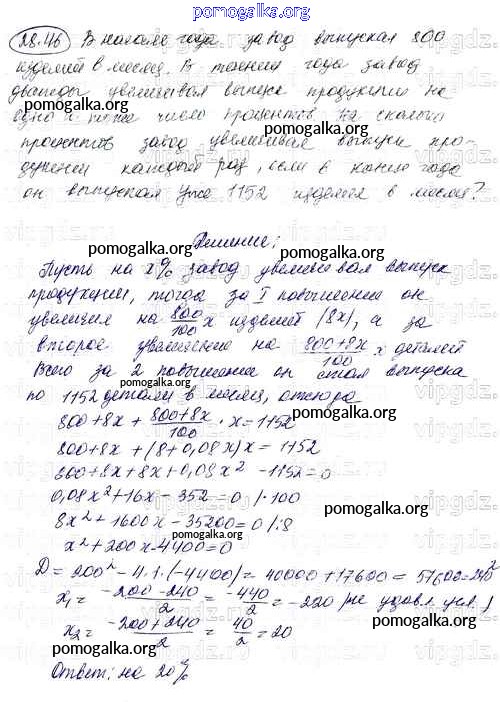 pomogalka.org
28.46 В начале года завод выпускал 800
изделий в месяц. В течении года завод
дважды увеличивал выпуск продукции на
одно и тоже число процентов. На сколько
процентов завод увеличивал выпуск про-
дукции каждый раз, если в конце года
он выпускал уже 1152 изделия в месяц?
Решение:
pomogalka.org
Пусть на x% завод увеличивал выпуск
продукции, тогда за I повышение он
увеличил на 800/100 x изделий (8x), а за
второе увеличение на (800+8x)/100 x деталей
Всего за 2 повышения он стал выпускать
по 1152 деталей в месяц, отсюда
800+8x+(800+8x)/100·x=1152
800+8x+(8+0,08x)x=1152
800+8x+8x+0,08x²-1152=0
0,08x²+16x-352=0 /·100
8x²+1600x-35200=0 /:8
x²+200x-4400=0
D=200²-4·1·(-4400)=40000+17600=57600=240²
x₁=(-200-240)/2=-440/2=-220 (не удовл. усл.)
x₂=(-200+240)/2=40/2=20
Ответ: на 20%
pomogalka.org